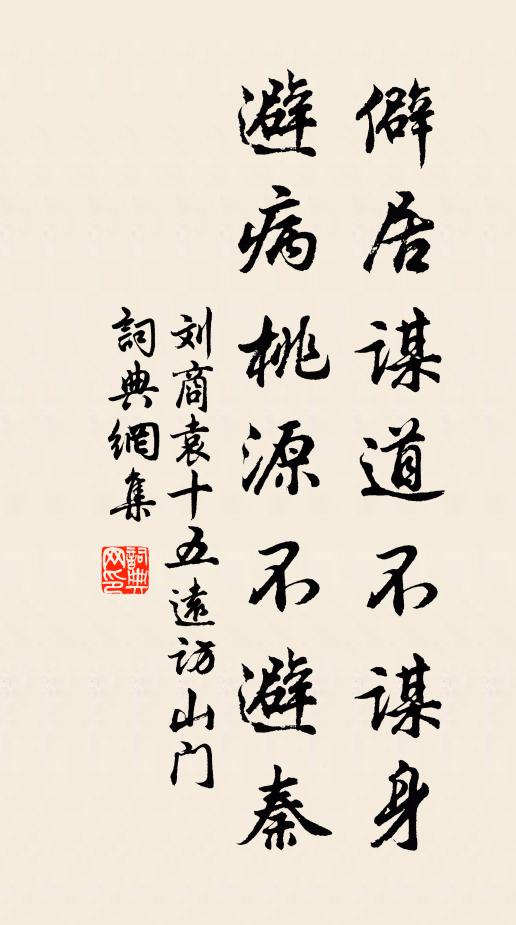 僻居谋道不谋身
避病桃源不避秦
刘商袁十五远访山门
詞典網集
詞典网印